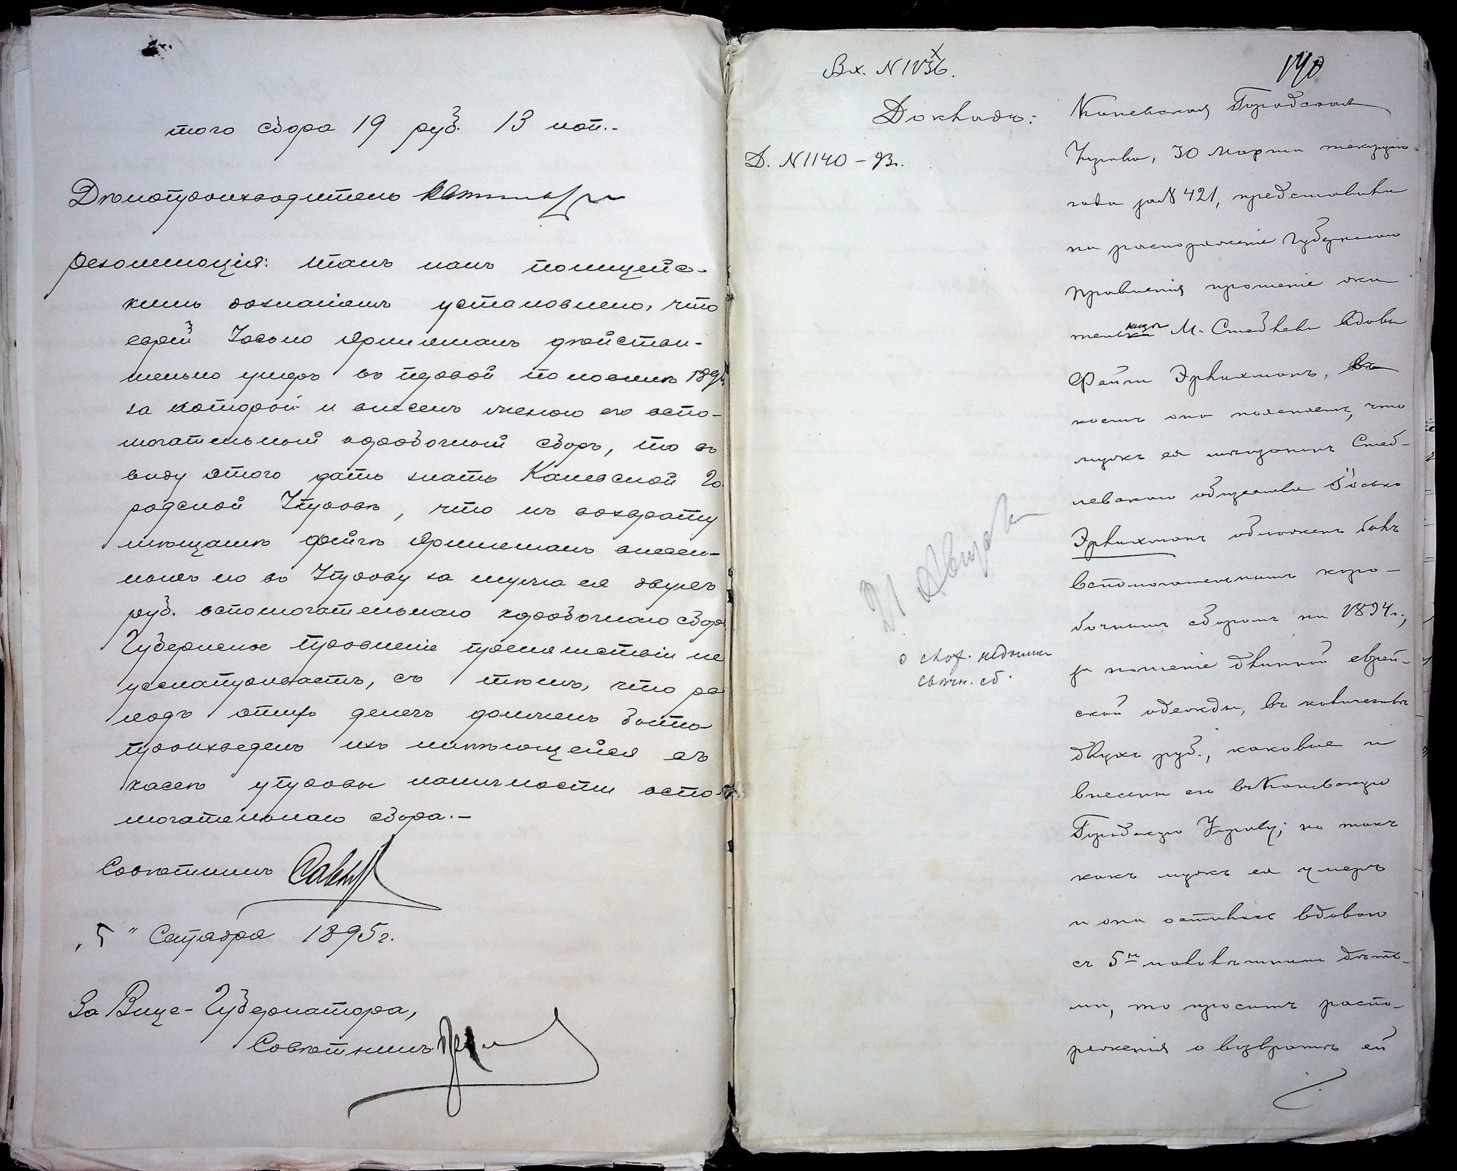 того сбора 19 руб. 13 коп.-
Дѣлопроизводитель
Резолюція: Такъ какъ полицейс-
кимъ дознаніемъ установлено, что
еврей Іосько Эрлихманъ дѣйстви-
тельно умеръ въ первой половинѣ 189
за которой и внесенъ женою его вспо-
могательный коробочный сборъ, то въ
виду этого дать знать Каневской Го
родской Управѣ, что къ возврату
мѣщанкѣ Фейгѣ Эрлихманъ внесен-
ныхъ ею въ Управу за мужа ея двухъ
руб. вспомогательнаго коробочнаго сбора
Губернское Правленіе препятствій не
усматриваетъ, съ тѣмъ, что рас
ходъ этихъ денегъ долженъ быть
произведенъ изъ имѣющейся въ
кассѣ управы наличности вспо-
могательнаго сбора.-
Совѣтникъ
„5" Сентября 1895 г.
За Вице-Губернатора,
Совѣтникъ
Вх. N
190
Докладъ:
Д. N 1140 - 93г.
Каневская Городская
Управа, 30 Марта текущаго
года за N 421, представила
на распоряженіе Губернскаго
Правленія прошеніе жи
тельницы М. Стеблева вдовы
Фейги Эрлихманъ, въ
коемъ она поясняетъ, что
мужъ ея мѣщанинъ Стеб-
левскаго общества Іосько
Эрлихманъ обложенъ былъ
вспомогательнымъ коро-
бочнымъ сборомъ на 1894 г.,
за ношеніе длинной еврей-
ской одежды, въ количествѣ
двухъ руб., каковые и
внесены ею въ Каневскую
Городскую Управу; но такъ
какъ мужъ ея умеръ
и она осталась вдовою
съ 5ю малолѣтними дѣть-
ми, то проситъ распо-
ряженія о возвратѣ ей
21 Августа
о слож. недоимки
свѣчн. сб.